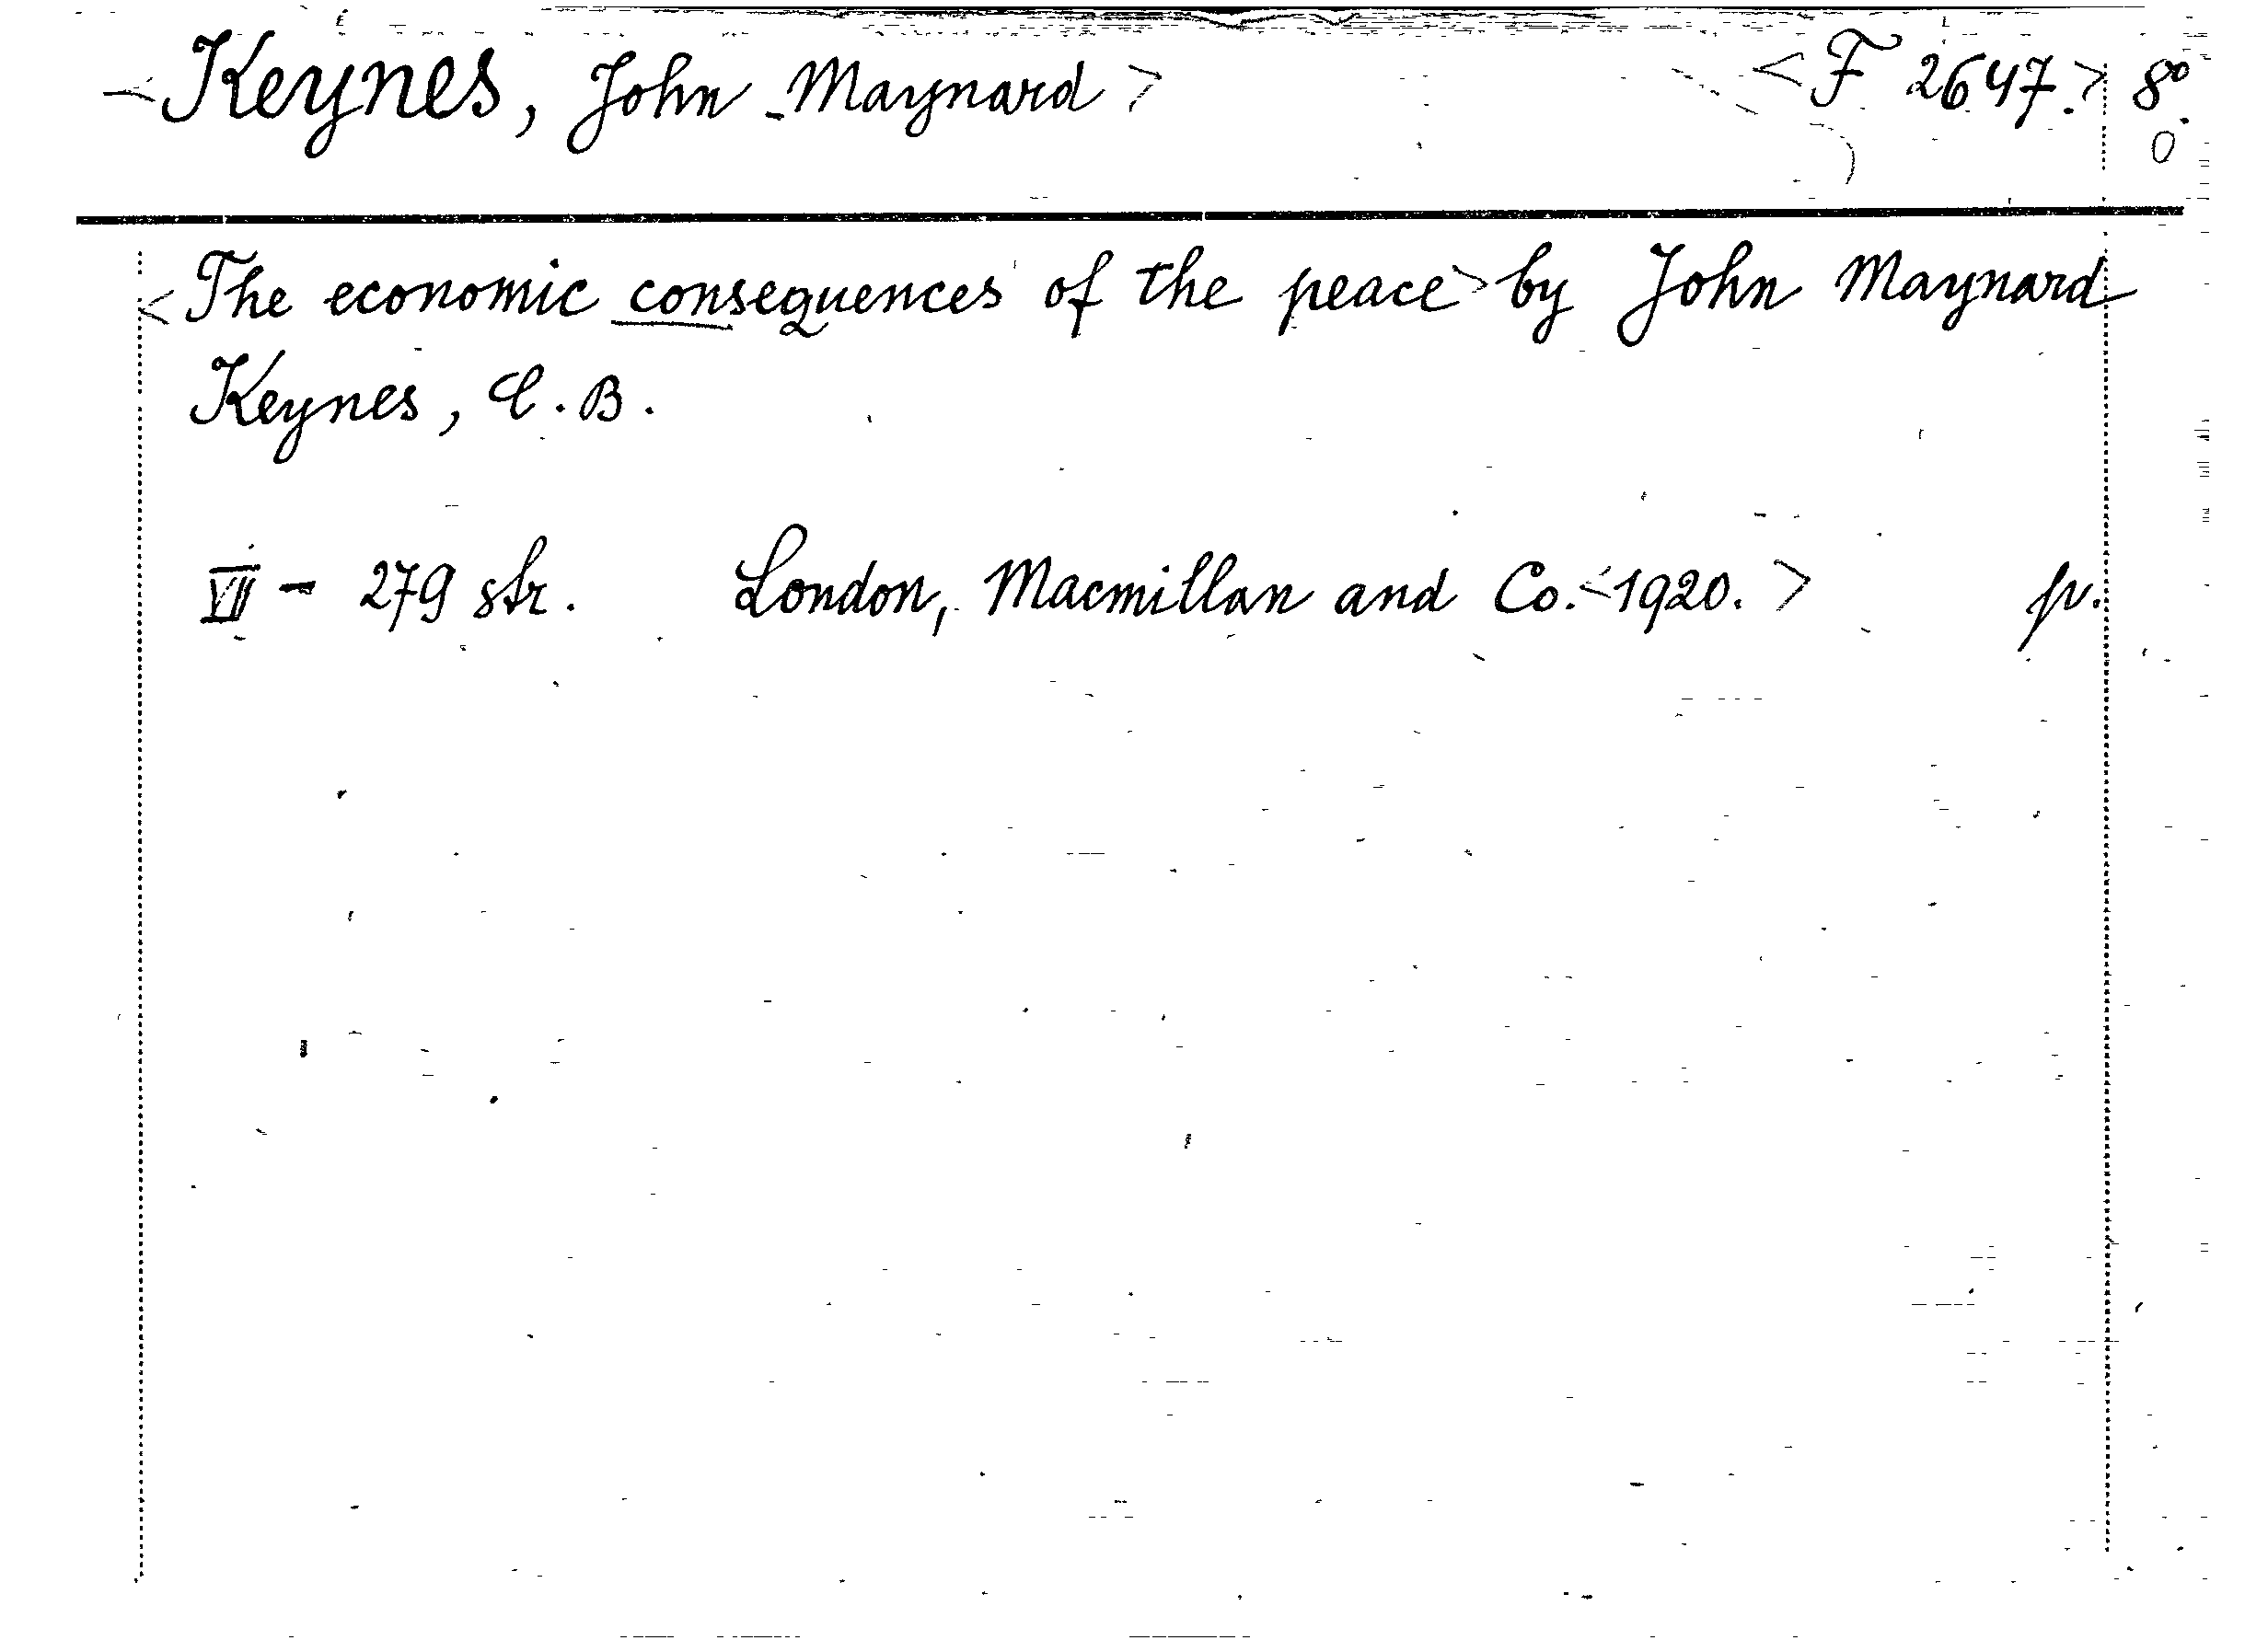 <Keynes, John Maynard> <F 2647.> 8°
0
<The economic consequences of the peace> by John Maynard
Keynes, C.B.
VII - 279 str. London, Macmillan and Co. <1920.> pv.